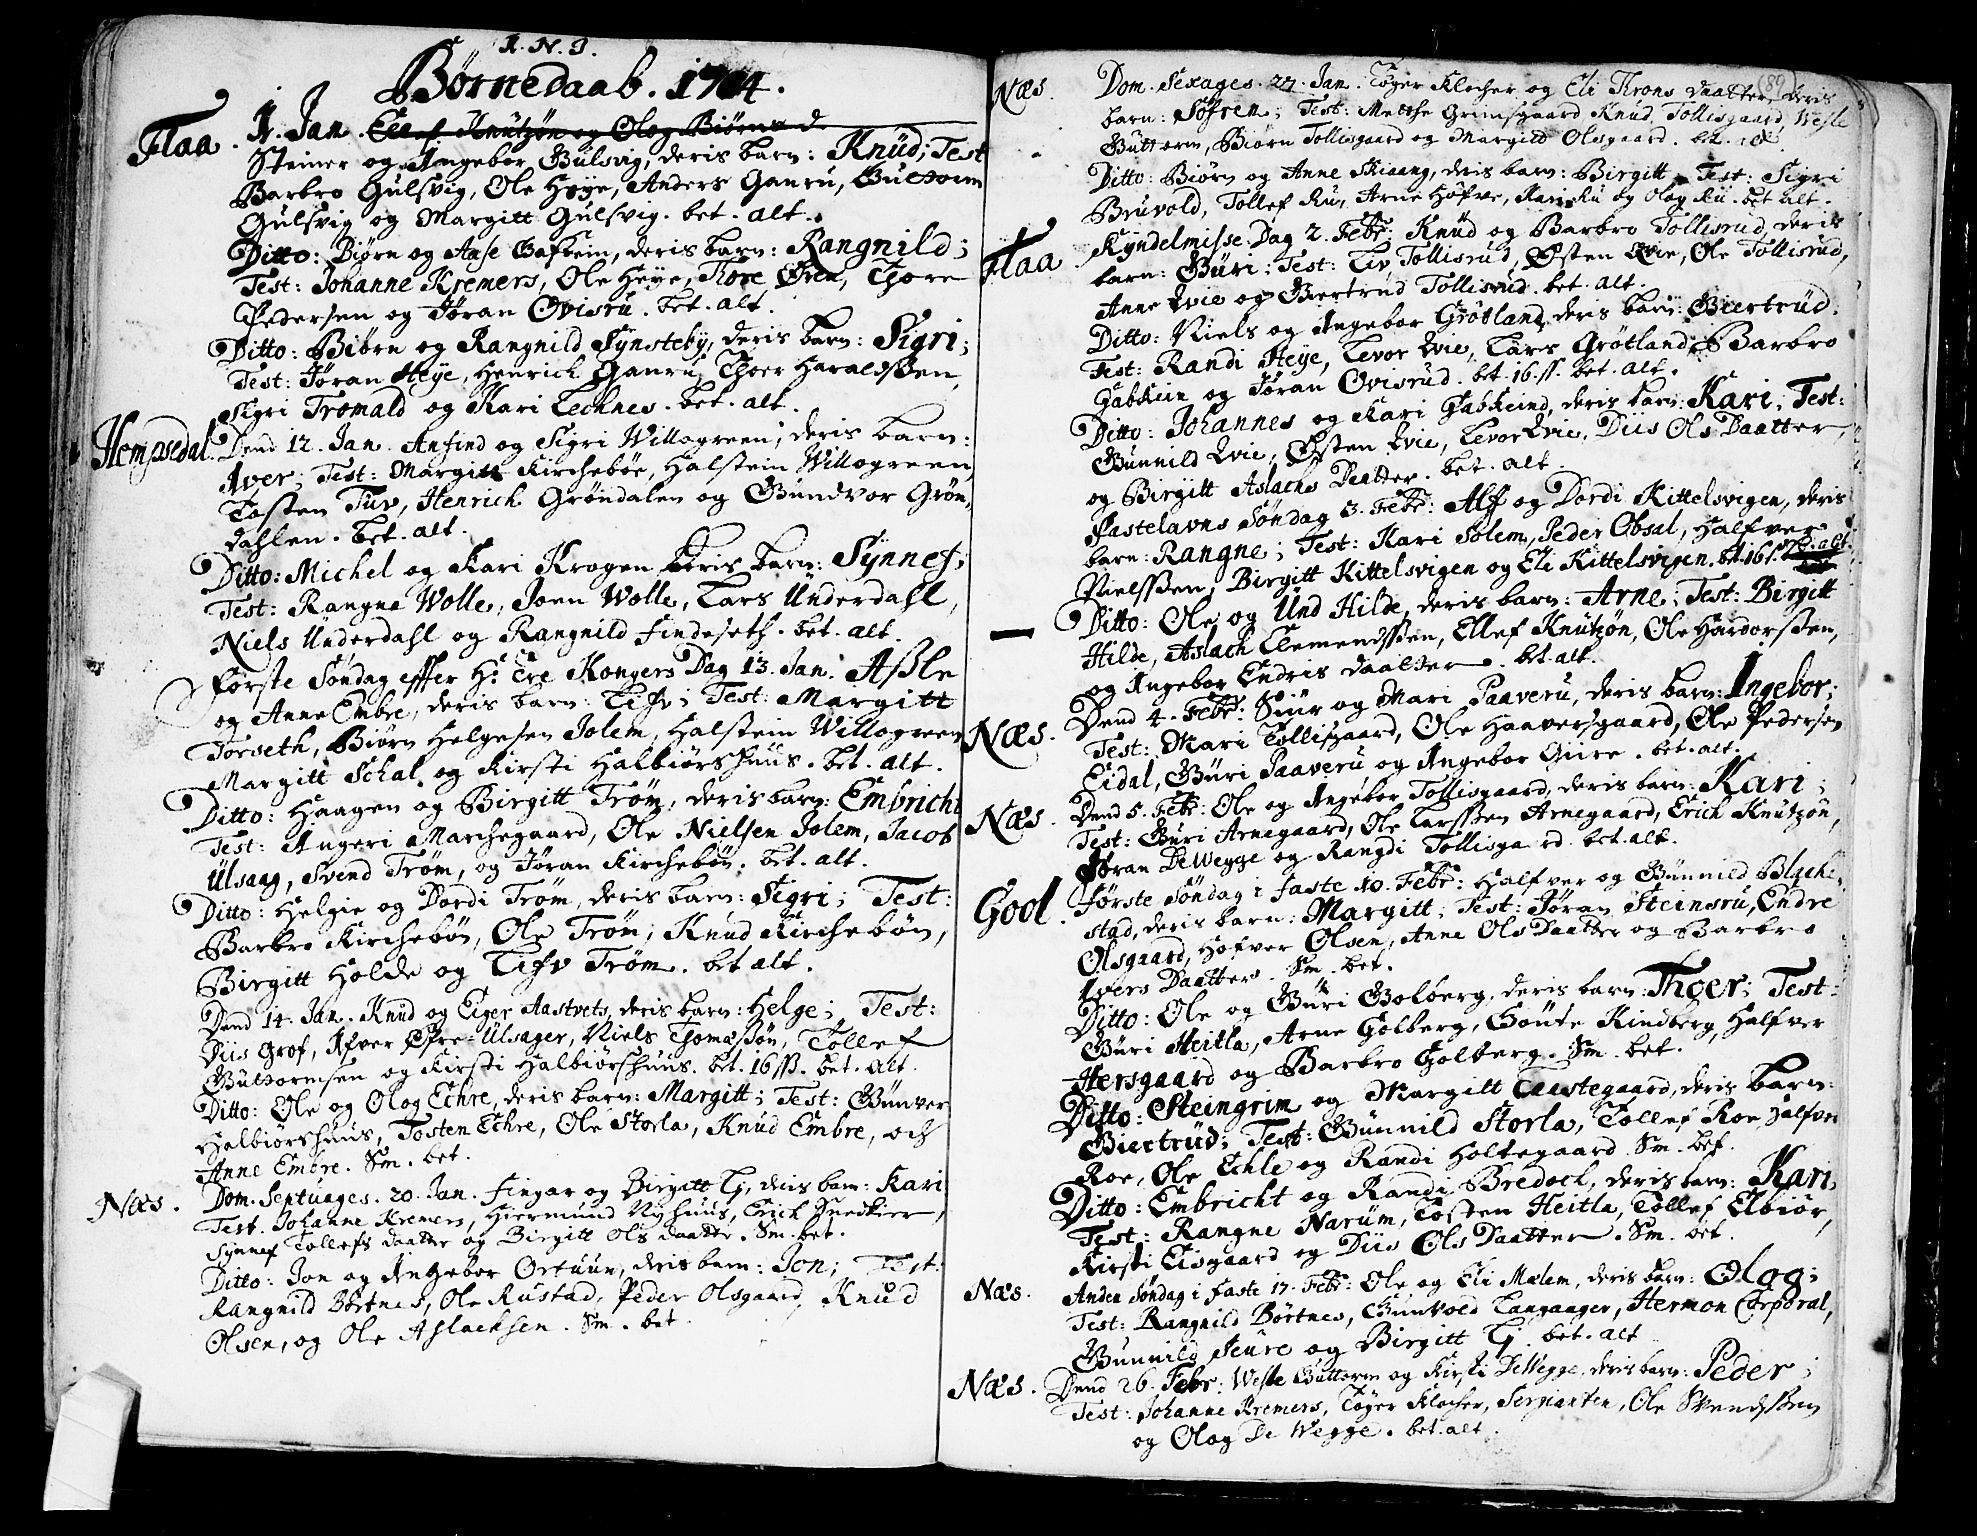 I. N. J.
Børnedaab. 1704.
Flaa. 1. Jan. Ellef Knutzøn og Olog Biørns d
Steiner og Ingebor Gulsvig, deris barn: Knud; Test
Barbro Gulsvig, Ole Høye, Anders Ganru, Guttorm
Gulsvig og Margitt Gulsvig. bet. alt.
Ditto: Biørn og Aase Gafkein, deris barn: Rangnild;
Test: Johanne Kremers, Ole Heye, Thore Øren, Thore
Pedersen og Jøran Ovisru. bet. alt.
Ditto: Biörn og Rangnild Synsteby, deris barn: Sigri;
Test: Jøran Heye, Henrich Ganru, Thoer Haraldssen,
Sigri Tromald og Kari Lechnes. bet. alt.
Hempsedal. Dend 12. Jan. Anfind og Sigri Willogreen, deris barn:
Iver; Test: Margitt Kirchebøe, Halstein Willogreen
Tosten Tuv, Henrich Grøndalen og Gundvor Grøn-
dahlen. bet. alt.
Ditto: Michel og Kari Krogen deris barn: Synnef;
Test: Rangne Wolle, Joen Wolle, Lars Underdahl,
Niels Underdahl og Rangnild Findeseth. bet. alt.
Første Søndag effter H. Tre Kongers Dag 13. Jan. Asle
og Anne Embre, deris barn: Lifv; Test: Margitt
Torseth, Biørn Helgesen Solem, Halstein Willogreen
Margitt Schal og Kirsti Halbiørshuus. bet. alt.
Ditto: Haagen og Birgitt Trøm, deris barn: Embricht
Test: Angeri Marchegaard, Ole Nielsen Solem, Jacob
Ulsaag, Svend Trøm, og Jøran Kirchebøn. bet. alt.
Ditto: Helgie og Dordi Trøm, deris barn: Sigri; Test:
Barbro Kirchebøn, Ole Trøm, Knud Kirchebøn,
Birgitt Holde og Lifv Trøm. bet alt.
Dend 14. Jan. Knud og Eiger Aastvets, deris barn: Helge; Test:
Diis Grof, Ifver Øfre-Ulsager, Niels Thomassøn, Tollef
Guttormsen og Kirsti Halbiørshuus. bet. 16 ß. bet. alt.
Ditto: Ole og Olog Echre, deris barn: Margitt; Test: Gunver
Halbiørshuus, Tosten Echre, Ole Storla, Knud Embre, och
Anne Embre. Sm. bet.
Næs. Dom. Septuages. 20. Jan. Fingar og Birgitt Lj, deris barn: Kari
Test. Johanne Kremers, Hiermund Nyhuus, Erich Snedkier,
Synnef Tollefs daatter og Birgitt Ols daatter. Sm. bet.
Ditto: Jon og Ingebor Ortuun, deris barn: Jon; Test:
Rangnild Børtnes, Ole Rustad, Peder Olsgaard, Knud
Olsen, og Ole Aslachsen. Sm. bet.
(80)
Næs. Dom. Sexages. 27. Jan. Tøger Klocher og Eli Throns daatter, deris
barn: Søfren; Test: Metthe Grimsgaard, Knud Tollisgaard, Wesle
Guttorm, Biørn Tollisgaard og Margitt Olsgaard. bet. alt.
Ditto: Biørn og Anne Skiaang, deris barn: Birgitt; Test: Sigri
Bruvold, Tollef Ru, Arne Høfve, Kari Ru og Olog Ru. bet alt.
Flaa. Kyndelmisse Dag 2. Febr: Knud og Barbro Tollisrud, deris
barn: Guri; Test: Liv Tollisrud, Østen Qvie, Ole Tollisrud,
Anne Qvie og Giertrud Tollisrud. bet. alt.
Ditto: Niels og Ingebor Grøtland, deris barn: Giertrud.
Test: Randi Heye, Levor Qvie, Lars Grøtland, Barbro
Gabkein og Jøran Ovisrud. bet. 16. ß. bet. alt.
Ditto: Johannes og Kari Gabkeind, deris barn: Kari; Test:
Gunnild Qvie, Østen Qvie, Levor Qvie, Diis Ols Daatter,
og Birgitt Aslachs Daatter. bet. alt
Fastelavns Søndag 3. Febr: Alf og Dordi Kittelsvigen, deris
barn: Rangne; Test: Kari Solem, Peder Obsal, Halfver
Nielssen, Birgitt Kittelsvigen og Eli Kittelsvigen. bt. 16 ß. bt. alt.
Ditto: Ole og Und Hilde, deris barn: Arne; Test: Birgitt
Hilde, Aslach Clemendssen, Ellef Knutzøn, Ole Hardorssen,
og Ingebor Endris daatter. bet. alt.
Næs. Dend 4. Febr: Siur og Mari Paaveru, deris barn: Ingebor;
Test: Mari Tollisgaard, Ole Haaversgaard, Ole Pedersen
Eidal, Guri Paaveru og Ingebor Giire. bet. alt.
Næs. Dend 5. Febr: Ole og Ingebor Tollisgaard, deris barn: Kari;
Test: Guri Arnegaard, Ole Larssen Arnegaard, Erich Knutzøn,
Jøran DeWegge og Rangdi Tollisgaard. bet. alt.
Gool. Første Søndag i faste 10. Febr: Halfver og Gunnild Blache-
stad, deris barn: Margitt; Test: Jøran Steinsru, Endre
Olsgaard, Hofver Olsen, Anne Ols Daatter og Barbro
Ivers Daatter. Sm. bet.
Ditto: Ole og Guri Golberg, deris barn: Thoer; Test:
Guri Heitla, Arne Golberg, Goute Kindberg, Halfver
Hersgaard og Barbro Golberg. Sm. bet.
Ditto: Steingrim og Margitt Taastegaard, deris barn:
Giertrud; Test: Gunnild Storla, Tollef Roe, Halfver
Roe, Ole Echle og Randi Holtegaard. Sm. bet.
Ditto: Embricht og Randi Bredoch, deris barn: Kari;
Test: Rangne Narum, Tosten Heitla, Tollef Elbiør,
Kirsti Eisgaard og Diis Ols Daatter. Sm. bet.
Næs. Anden Søndag i faste 17. Febr: Ole og Eli Mælem, deris barn: Olog;
Test: Rangnild Børtnes, Gunvold Langaager, Hermon Corporal,
Gunnild Seure og Birgitt Lj. bet. alt
Næs. Dend 26. Febr: Wesle Guttorm og Kirsti DeWegge, deris barn: Peder;
Test: Johanne Kremers, Tøger Klocher, Sergianten, Ole Svendssen
og Olog De Wegge. bet. alt.